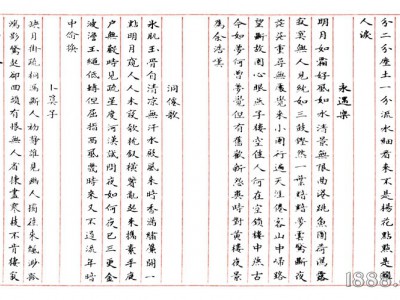 分二分塵土一分流水細看來不是楊花點點是離
人淚
永遇樂
明月如霜好風如水清景無限曲港跳魚圓荷瀉露
寂寞無人見紞如三鼓鏗然一葉黯黯夢雲驚斷夜
茫茫重尋無處覺來小園行遍天涯倦客山中歸路
望斷故園心眼燕子樓空佳人何在空鎖樓中燕古
今如夢何曾夢覺但有舊歡新怨異時對黃樓夜景
爲余浩嘆
洞僊歌
冰肌玉骨自清涼無汗水殿風來暗香滿繡簾開一
點明月窺人人未寢欹枕釵橫鬢亂起來攜素手庭
户無聲時見疏星度河漢試問夜如何夜已三更金
波澹玉繩低轉但屈指西風幾時來又不道流年暗
中偷換
卜算子
缺月掛疏桐漏斷人初靜誰見幽人獨往來縹緲孤
鴻影驚起卻回頭有恨無人省揀盡寒枝不肯棲寂